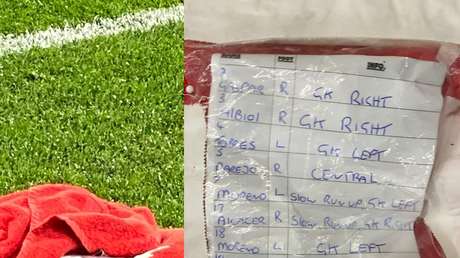 FOOT INFO.
GASPAR R GK RIGHT
3
ALBIOL R GK RIGHT
4
TORRES L GK LEFT
5
PAREJO R CENTRAL
MORENO L SLOW RUN UP, GK LEFT
17
ALCACER R SLOW RUN UP, GK RIGHT
18
MORENO L GK LEFT